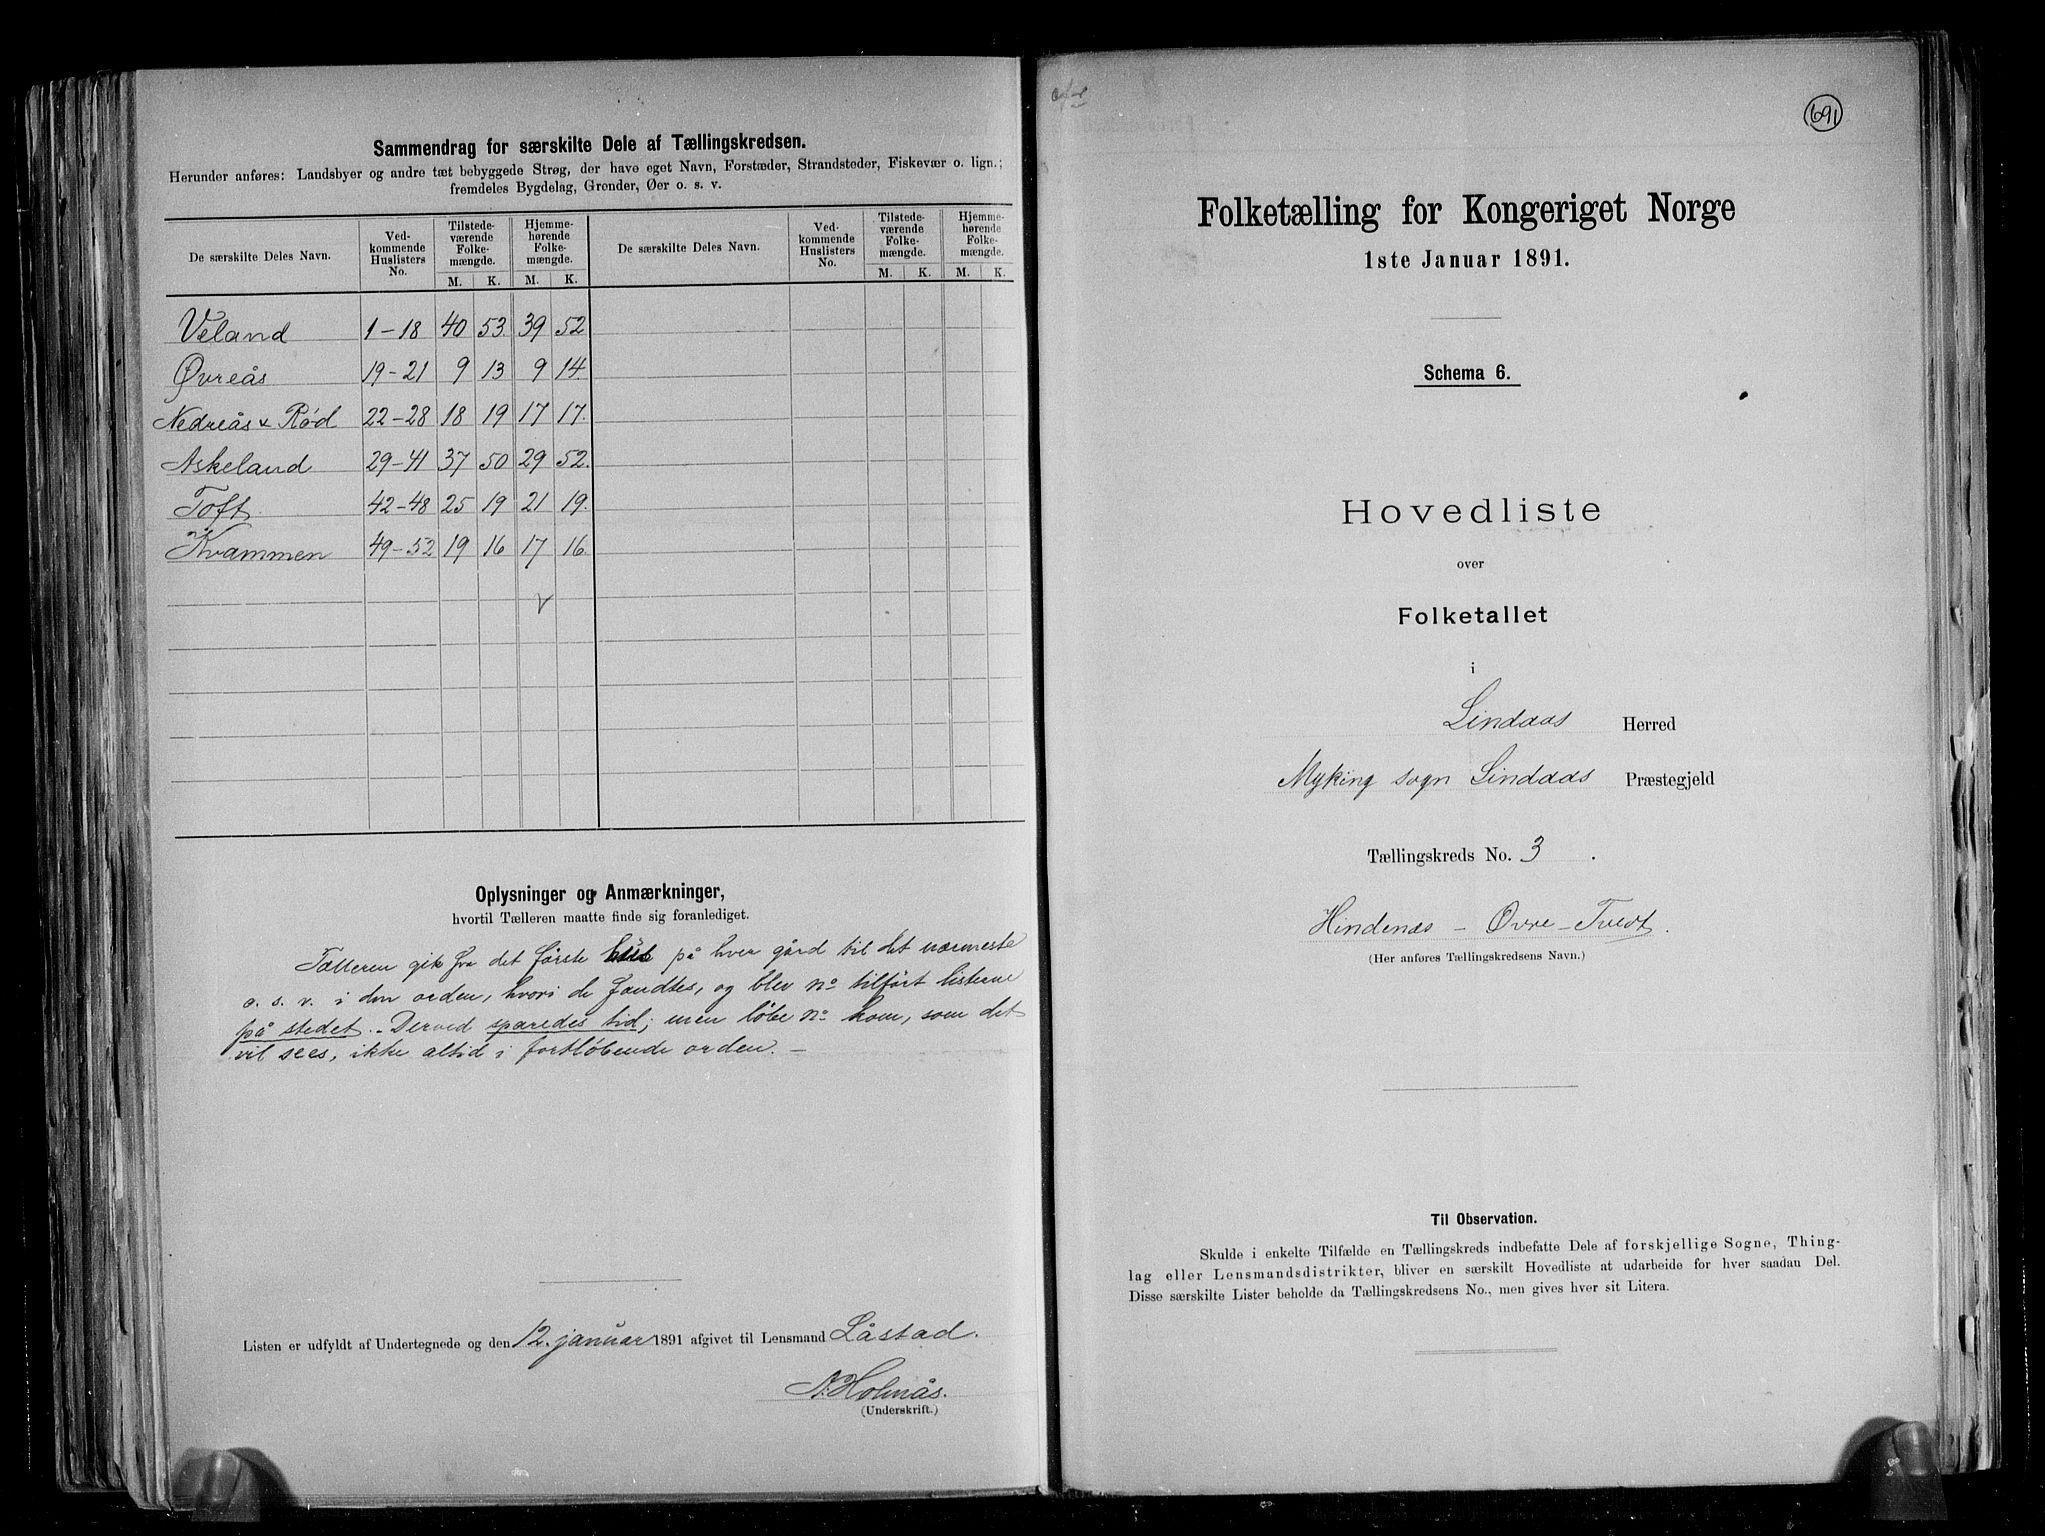 Sammendrag for særskilte Dele af Tællingskredsen.
Herunder anføres: Landsbyer og andre tæt bebyggede Strøg, der have eget Navn, Forstæder, Strandsteder, Fiskevær o. lign.;
fremdeles Bygdelag, Grender, Øer o. s. v.
De særskilte Deles Navn. Ved-kommende Huslisters No. Tilstede-værende Folke-mængde. Hjemme-hørende Folke-mængde. De særskilte Deles Navn. Ved-kommende Huslisters No. Tilstede-værende Folke-mængde. Hjemme-hørende Folke-mængde.
M. K. M. K. M. K. M. K.
Veland 1-18 40 53 39 52
Øvreås 19-21 9 13 9 14
Nedreås & Rød 22-28 18 19 17 17
Askeland 29-41 37 50 29 52
Toft 42-48 25 19 21 19
Kvammen 49-52 19 16 17 16
Oplysninger og Anmærkninger,
hvortil Tælleren maatte finde sig foranlediget.
Tælleren gik fra det første hus på hver gård til det nærmeste
o. s. v. i den orden, hvori de fandtes, og blev No tilført listerne
på stedet. - Derved sparedes tid; men løbe No kom, som det
vil sees, ikke altid i fortløbende orden. -
Listen er udfyldt af Undertegnede og den 12. januar 1891 afgivet til Lensmand Låstad.
A. Holmås.
(Underskrift.)
691
Folketælling for Kongeriget Norge
1ste Januar 1891.
Schema 6.
Hovedliste
over
Folketallet
i
Lindaas Herred
Myking sogn Lindaas Præstegjeld
Tællingskreds No. 3.
Hindenæs - Øvre-Tvedt.
(Her anføres Tællingskredsens Navn.)
Til Observation.
Skulde i enkelte Tilfælde en Tællingskreds indbefatte Dele af forskjellige Sogne, Thing-
lag eller Lensmandsdistrikter, bliver en særskilt Hovedliste at udarbeide for hver saadan Del.
Disse særskilte Lister beholde da Tællingskredsens No., men gives hver sit Litera.